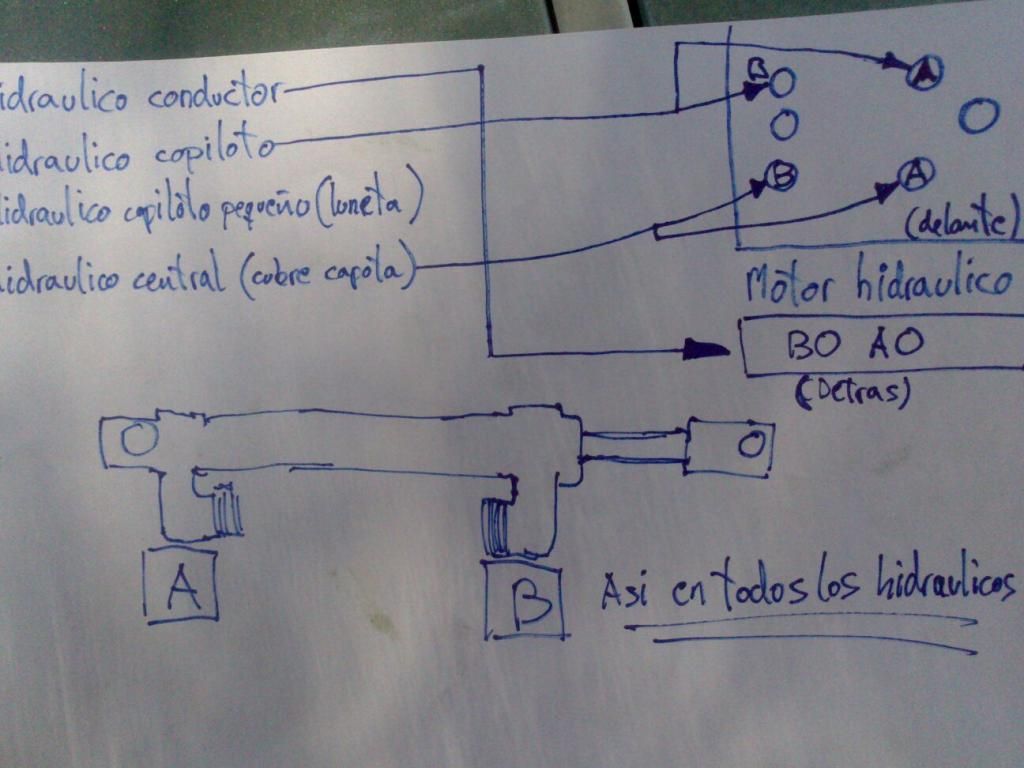 idraulico conductor
hidraulico copiloto
hidraulico copilòto pequeño (luneta)
hidraulico central (cubre capota)
B
A
B
A
(delante)
Motor hidraulico
BO AO
(Detras)
A
B
Asi en todos los hidraulicos